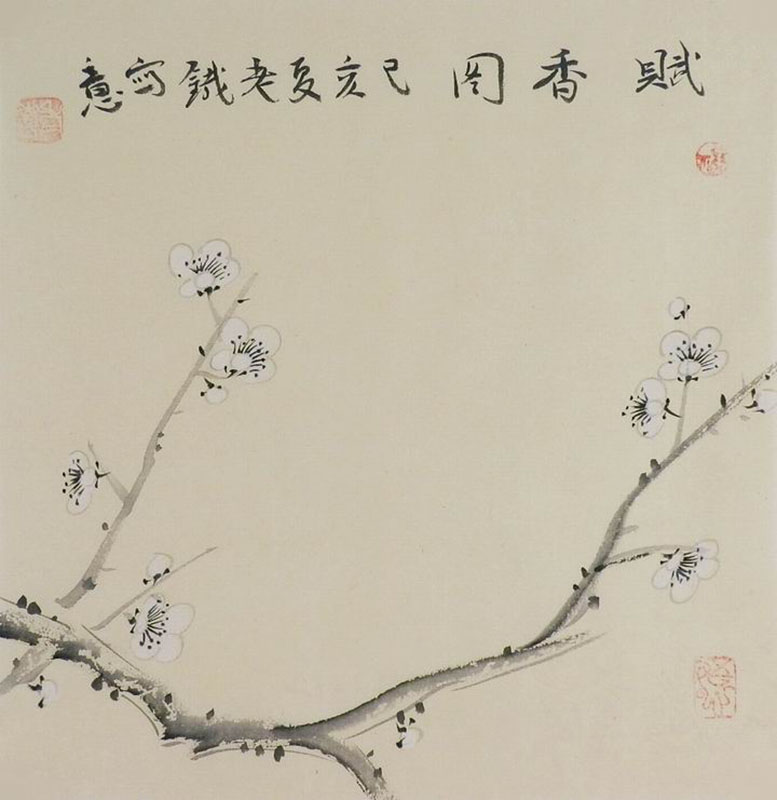 賦香图己亥夏老鐵寫意